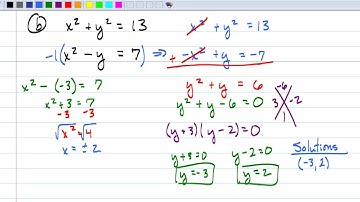 (b) x² + y² = 13
-1(x² - y = 7) ⇒
x² + y² = 13
+ -x² + y = -7
y² + y = 6
y² + y - 6 = 0
(y+3)(y-2) = 0
y+3=0 y-2=0
y=-3 y=2
-6
3 -2
1
x² - (-3) = 7
x² + 3 = 7
-3 -3
√x² = √4
x = ± 2
Solutions
(-3, 2)